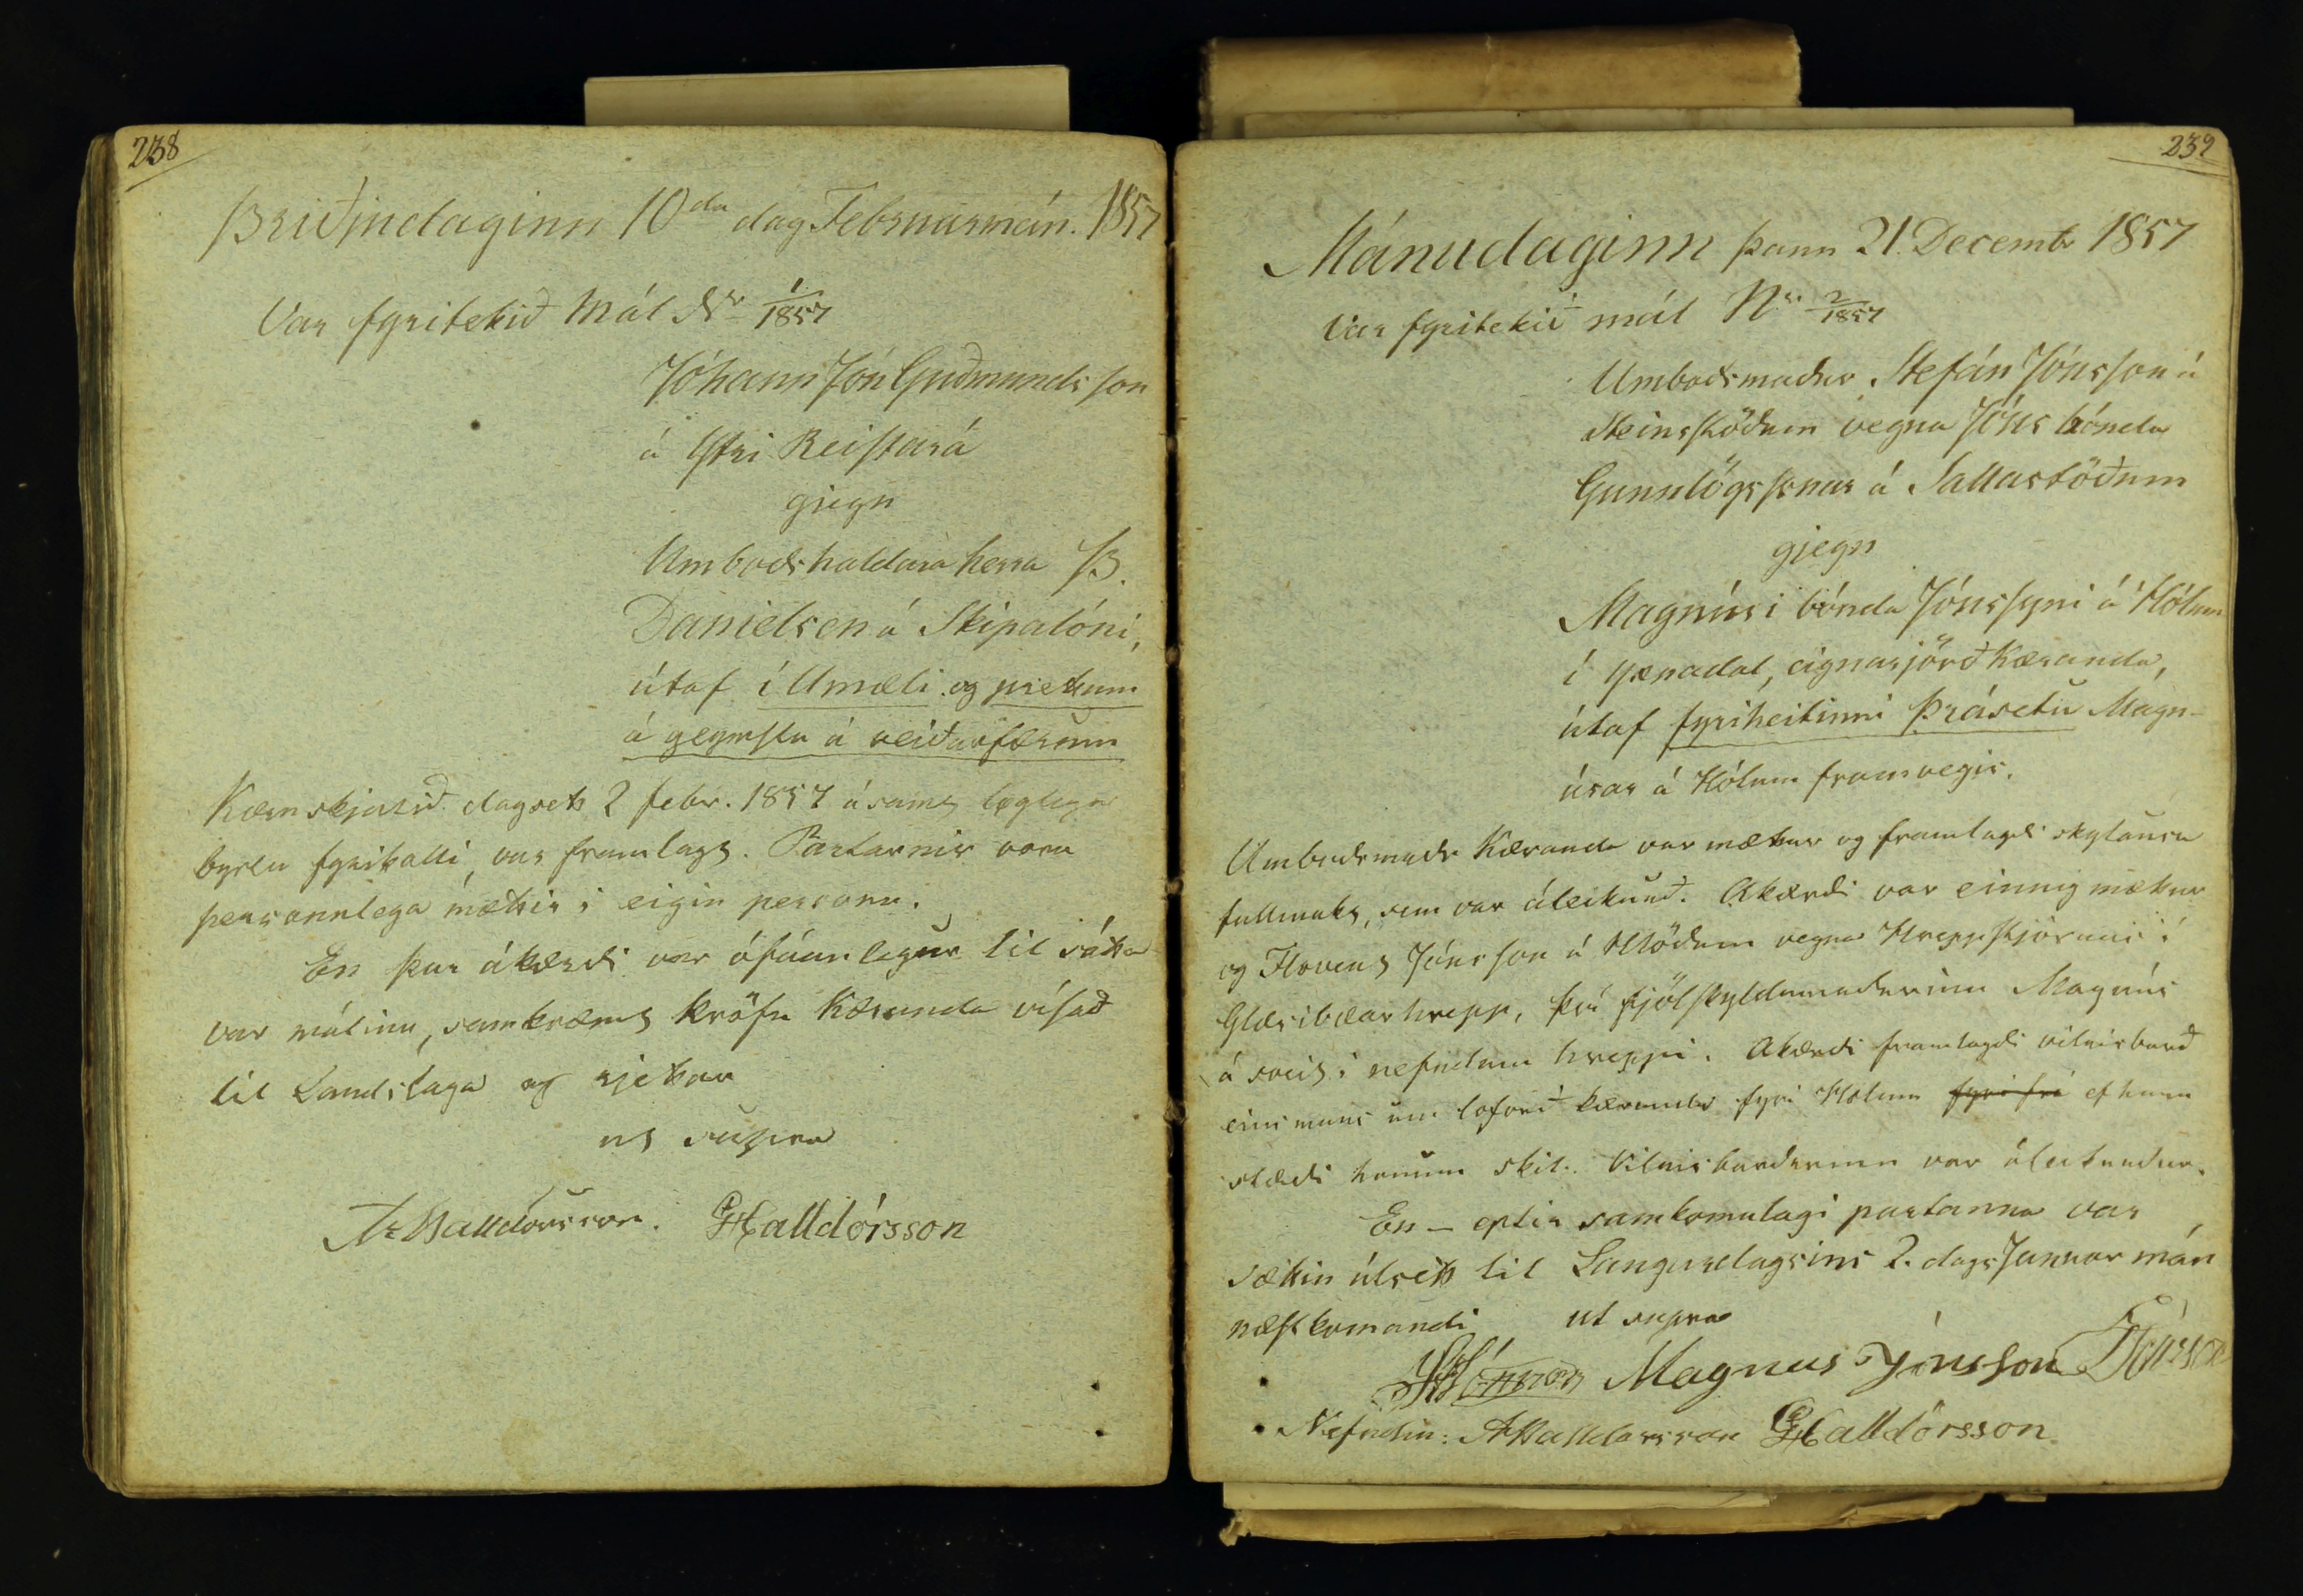 238
Þriðjudaginn 10da dag Februarmán. 1857
Var fyritekið Mál Nr 1/1857
Jóhann Jón Guðmundsson
á Ytri Reistará
gjegn
Umboðshaldara herra Þ.
Danielsen á Skipalóni,
útaf íllmæli og prettum
á greiðslu á veiðarfærum
Kæruskjalið dagsett 2 febr. 1857 ásamt löglega
byrtu fyrikalli, var framlagt. Partarnir voru
personulega mættir í eigin personu.
En þar ákærði var ófáanlegur til sátta
var málinu, samkvæmt kröfu kæranda vísað
til Landslaga og rjettar
ut supra
Halldórsson. GHalldórsson
239
Mánudaginn þann 21. Decembr 1857
Var fyritekið mál Nr. 2/1857
Umboðsmaður Stefán Jónsson á
Steinsstöðum vegna Jóns bónda
Gunnlögssonar á Sallastöðum
gjegn
Magnúsi bónda Jónssyni á Hólum
í Yxnadal, eignarjörð Kæranda,
útaf fyriheitinni þrásetu Magn-
úsar á Hólum framvegis.
Umboðsmaðr Kæranda var mættur og framlagði skylausa
fullmakt, sem var áteiknuð. Ákærði var einnig mættur
og Flovent Jónsson á Hlöðum vegna Hreppstjórans í
Glæsibæarhrepp, því fjölskyldumaðurinn Magnús
á sveit í nefndum hreppi. Ákærði framlagði vitnisburð
eins manns um loforð kæranda fyri Hólum fyri frí ef hann
stæði honum skil. Vitnisburðurinn var áteiknaður.
En – eptir samkomulagi partanna var
sættin útsett til Laugardagsins 2. dags Januar mán
næstkomandi ut supra
Magnus Jónsson FJónsson
Nefndin: Halldorsson GHalldórsson